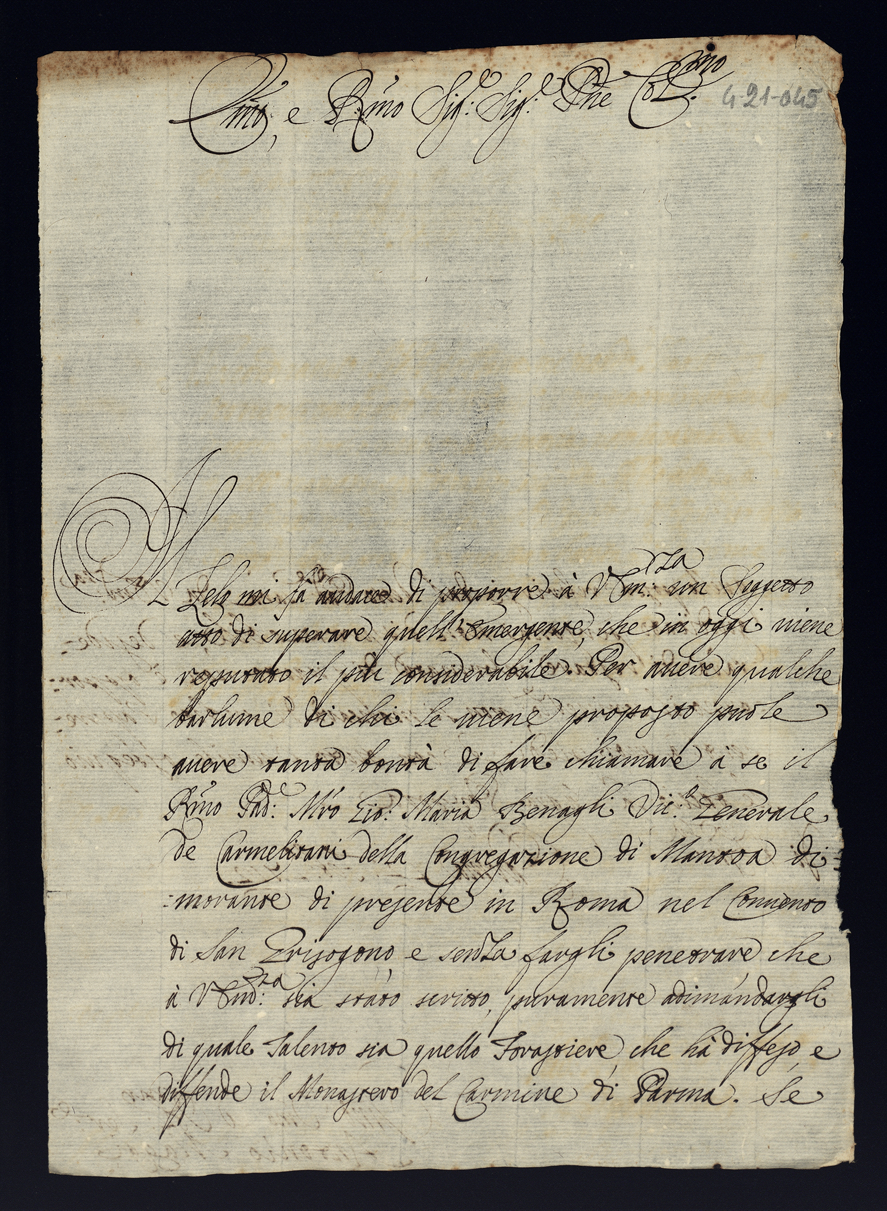 Emo, e Rmo Sig.r Sig.r Pne Colmo
421-045
Il Zelo mi fa audace di proporre à V. Em.za un Soggetto
atto di superare quell'emergente, che in oggi viene
reputato il più considerabile. Per avere qualche
barlume di chi le viene proposto puole
avere tanta bontà di fare chiamare à se il
Rmo Pad.e Mro Gio: Maria Benagli Vic.o Generale
de Carmelitani della Congregazione di Mantoa di-
:morante di presente in Roma nel Convento
di San Grisogono, e senza fargli penetrare che
à V. Em.za sia stato scritto, puramente adimandargli
di quale Talento sia quello Forastiere che hà diffeso, e
diffende il Monastero del Carmine di Parma. Se